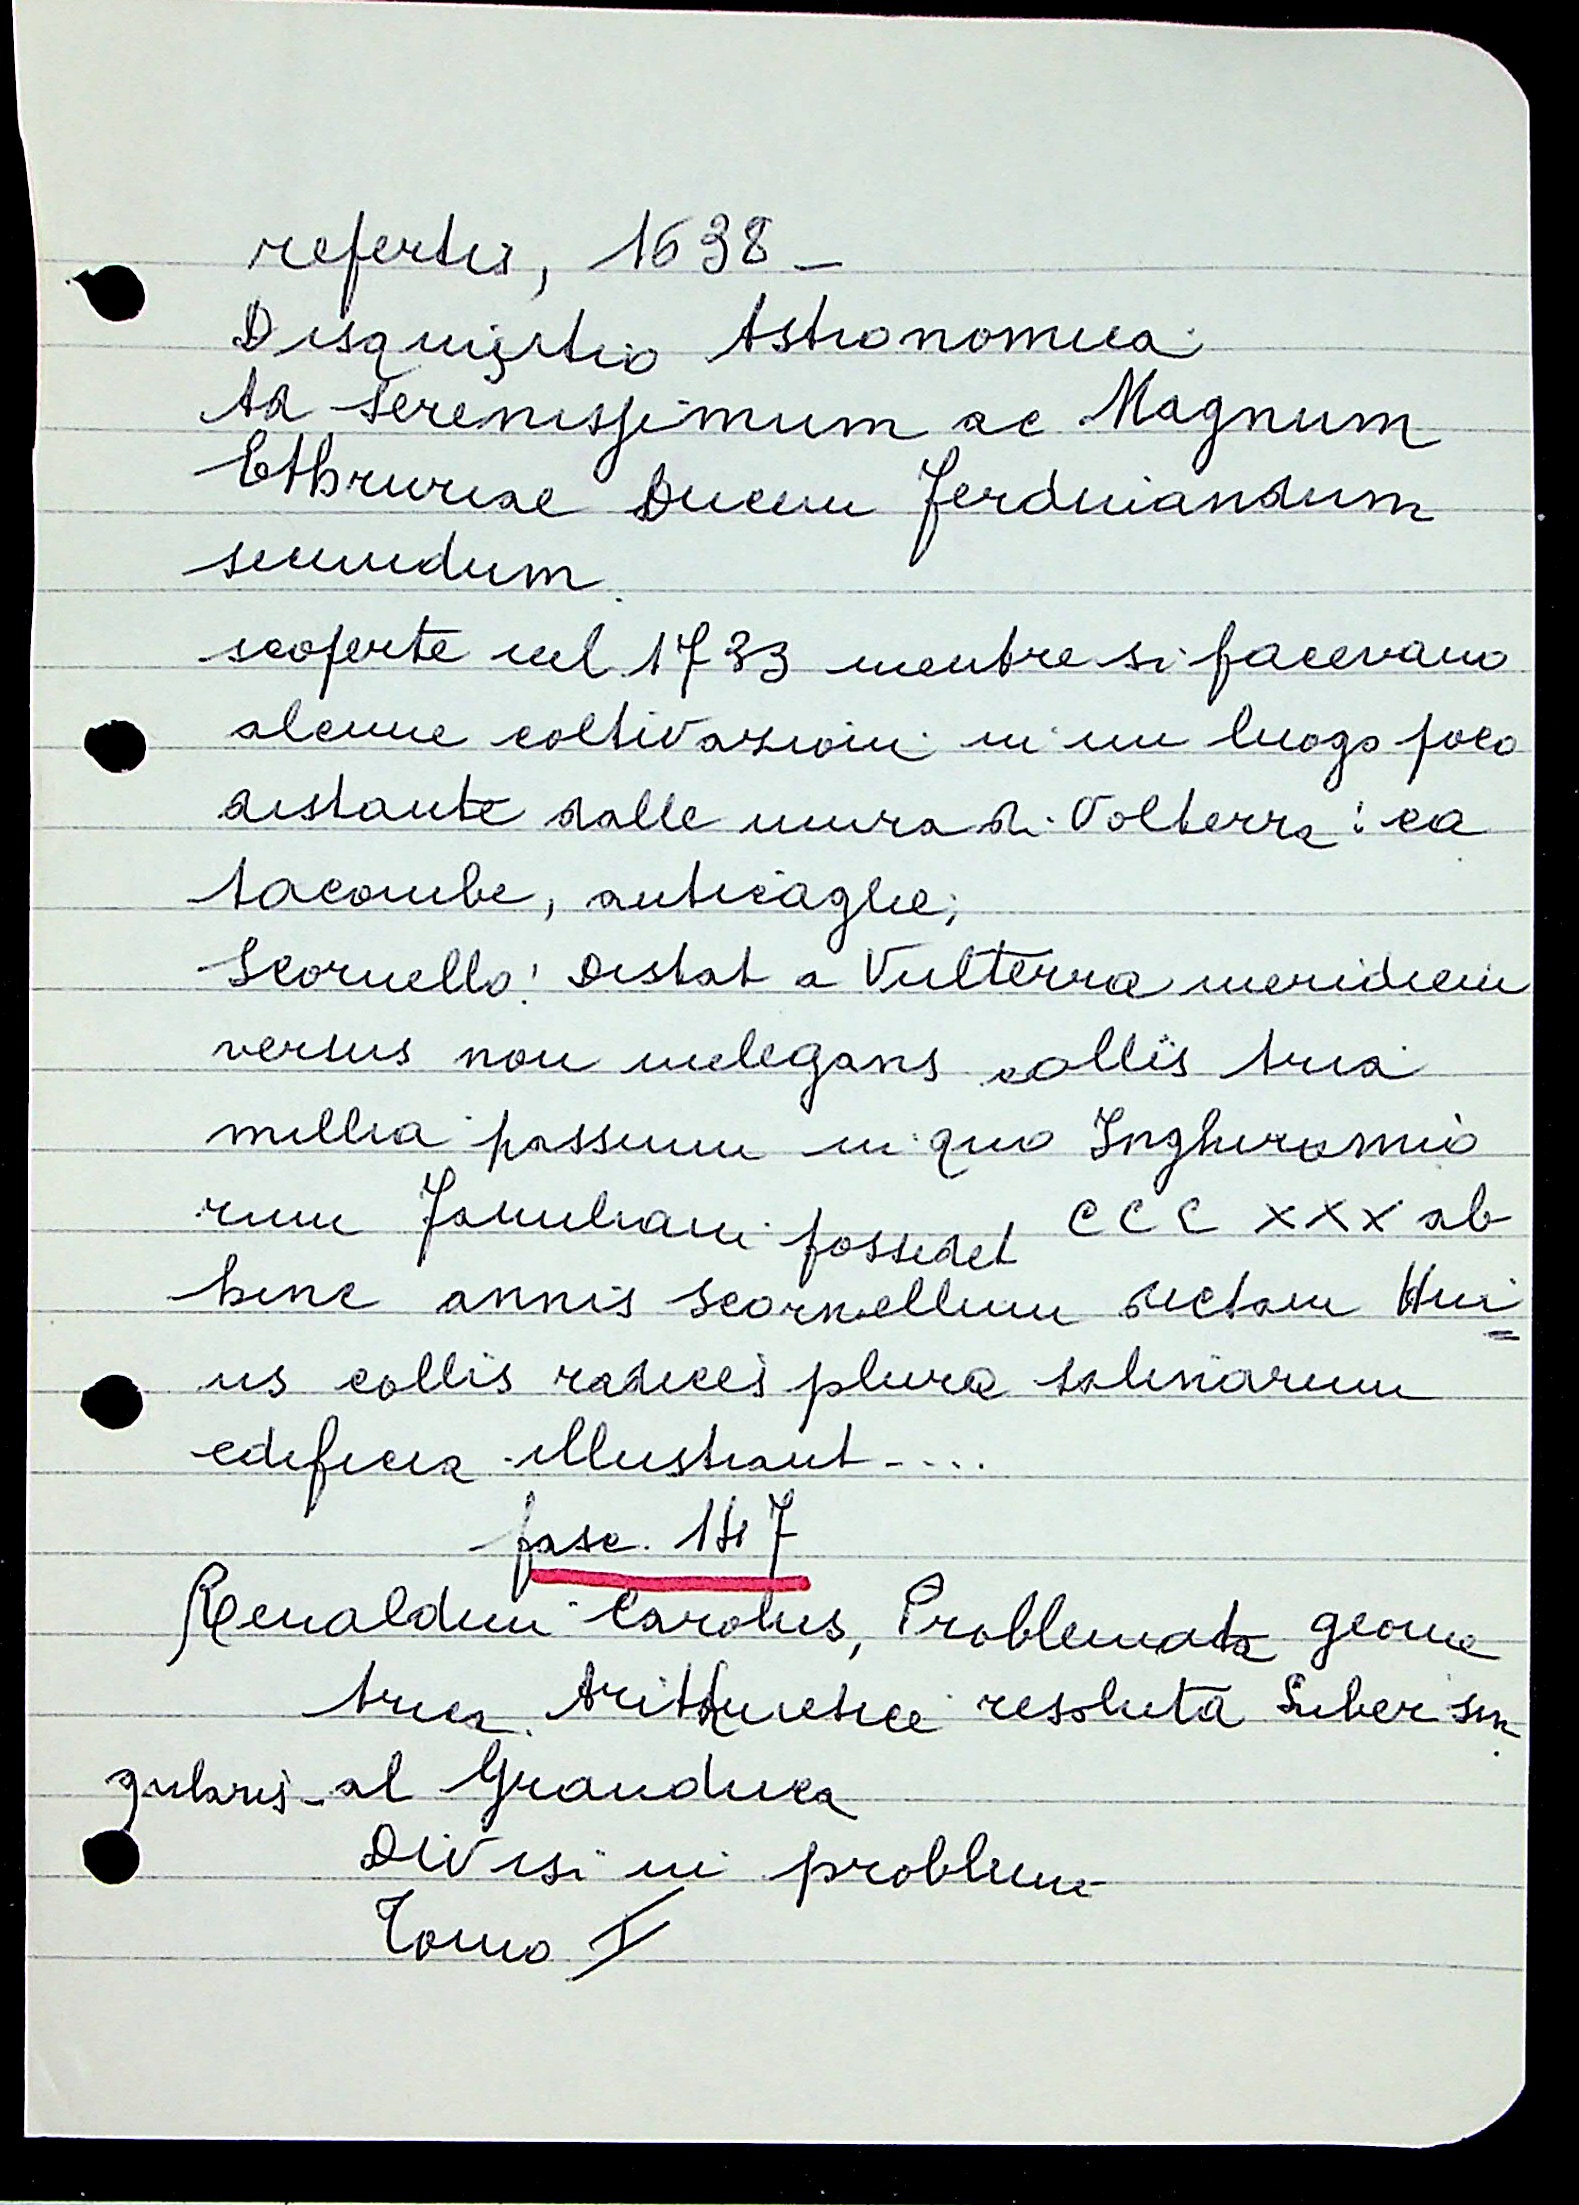 refertis, 1638 -
Disquisitio Astronomica
Ad Serenissimum ac Magnum
Ethruriae Ducem Ferdinandum
secundum.
scoperte nel 1733 mentre si facevano
alcune coltivazioni in un luogo poco
distante dalle mura di Volterra: ca
tacombe, anticaglie;
Scornello: Distat a Vulterra meridiem
versus non inelegans collis tria
millia passuum in quo Inghiramio
rum Familiam possedet CCC XXX ab
hinc annis Scornellum dictam Hui
us collis radices plura salinarum
edificia illustrant ....
fasc. 147
Renaldini Carolus, Problemata geome
trica Arithmetice resoluta Liber sin
gularis - al Granduca
Divisi in problemi
Tomo I